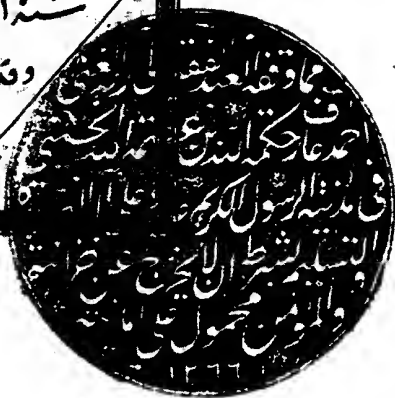 سنة
مما وقفه العبد الفقير الى ربه الغني
احمد عارف حكمة الله بن عصمة الله الحسيني
في مدينة الرسول الكريم عليه و على آله الصلاة
والتسليم بشرط ان لا يخرج عن خزانته
والمؤمن محمول على امانته
١٢٦٦